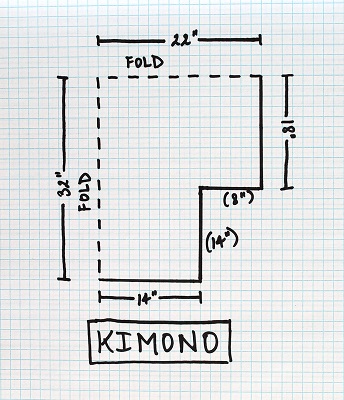 22"
FOLD
32"
FOLD
18"
(8")
(14")
14"
KIMONO